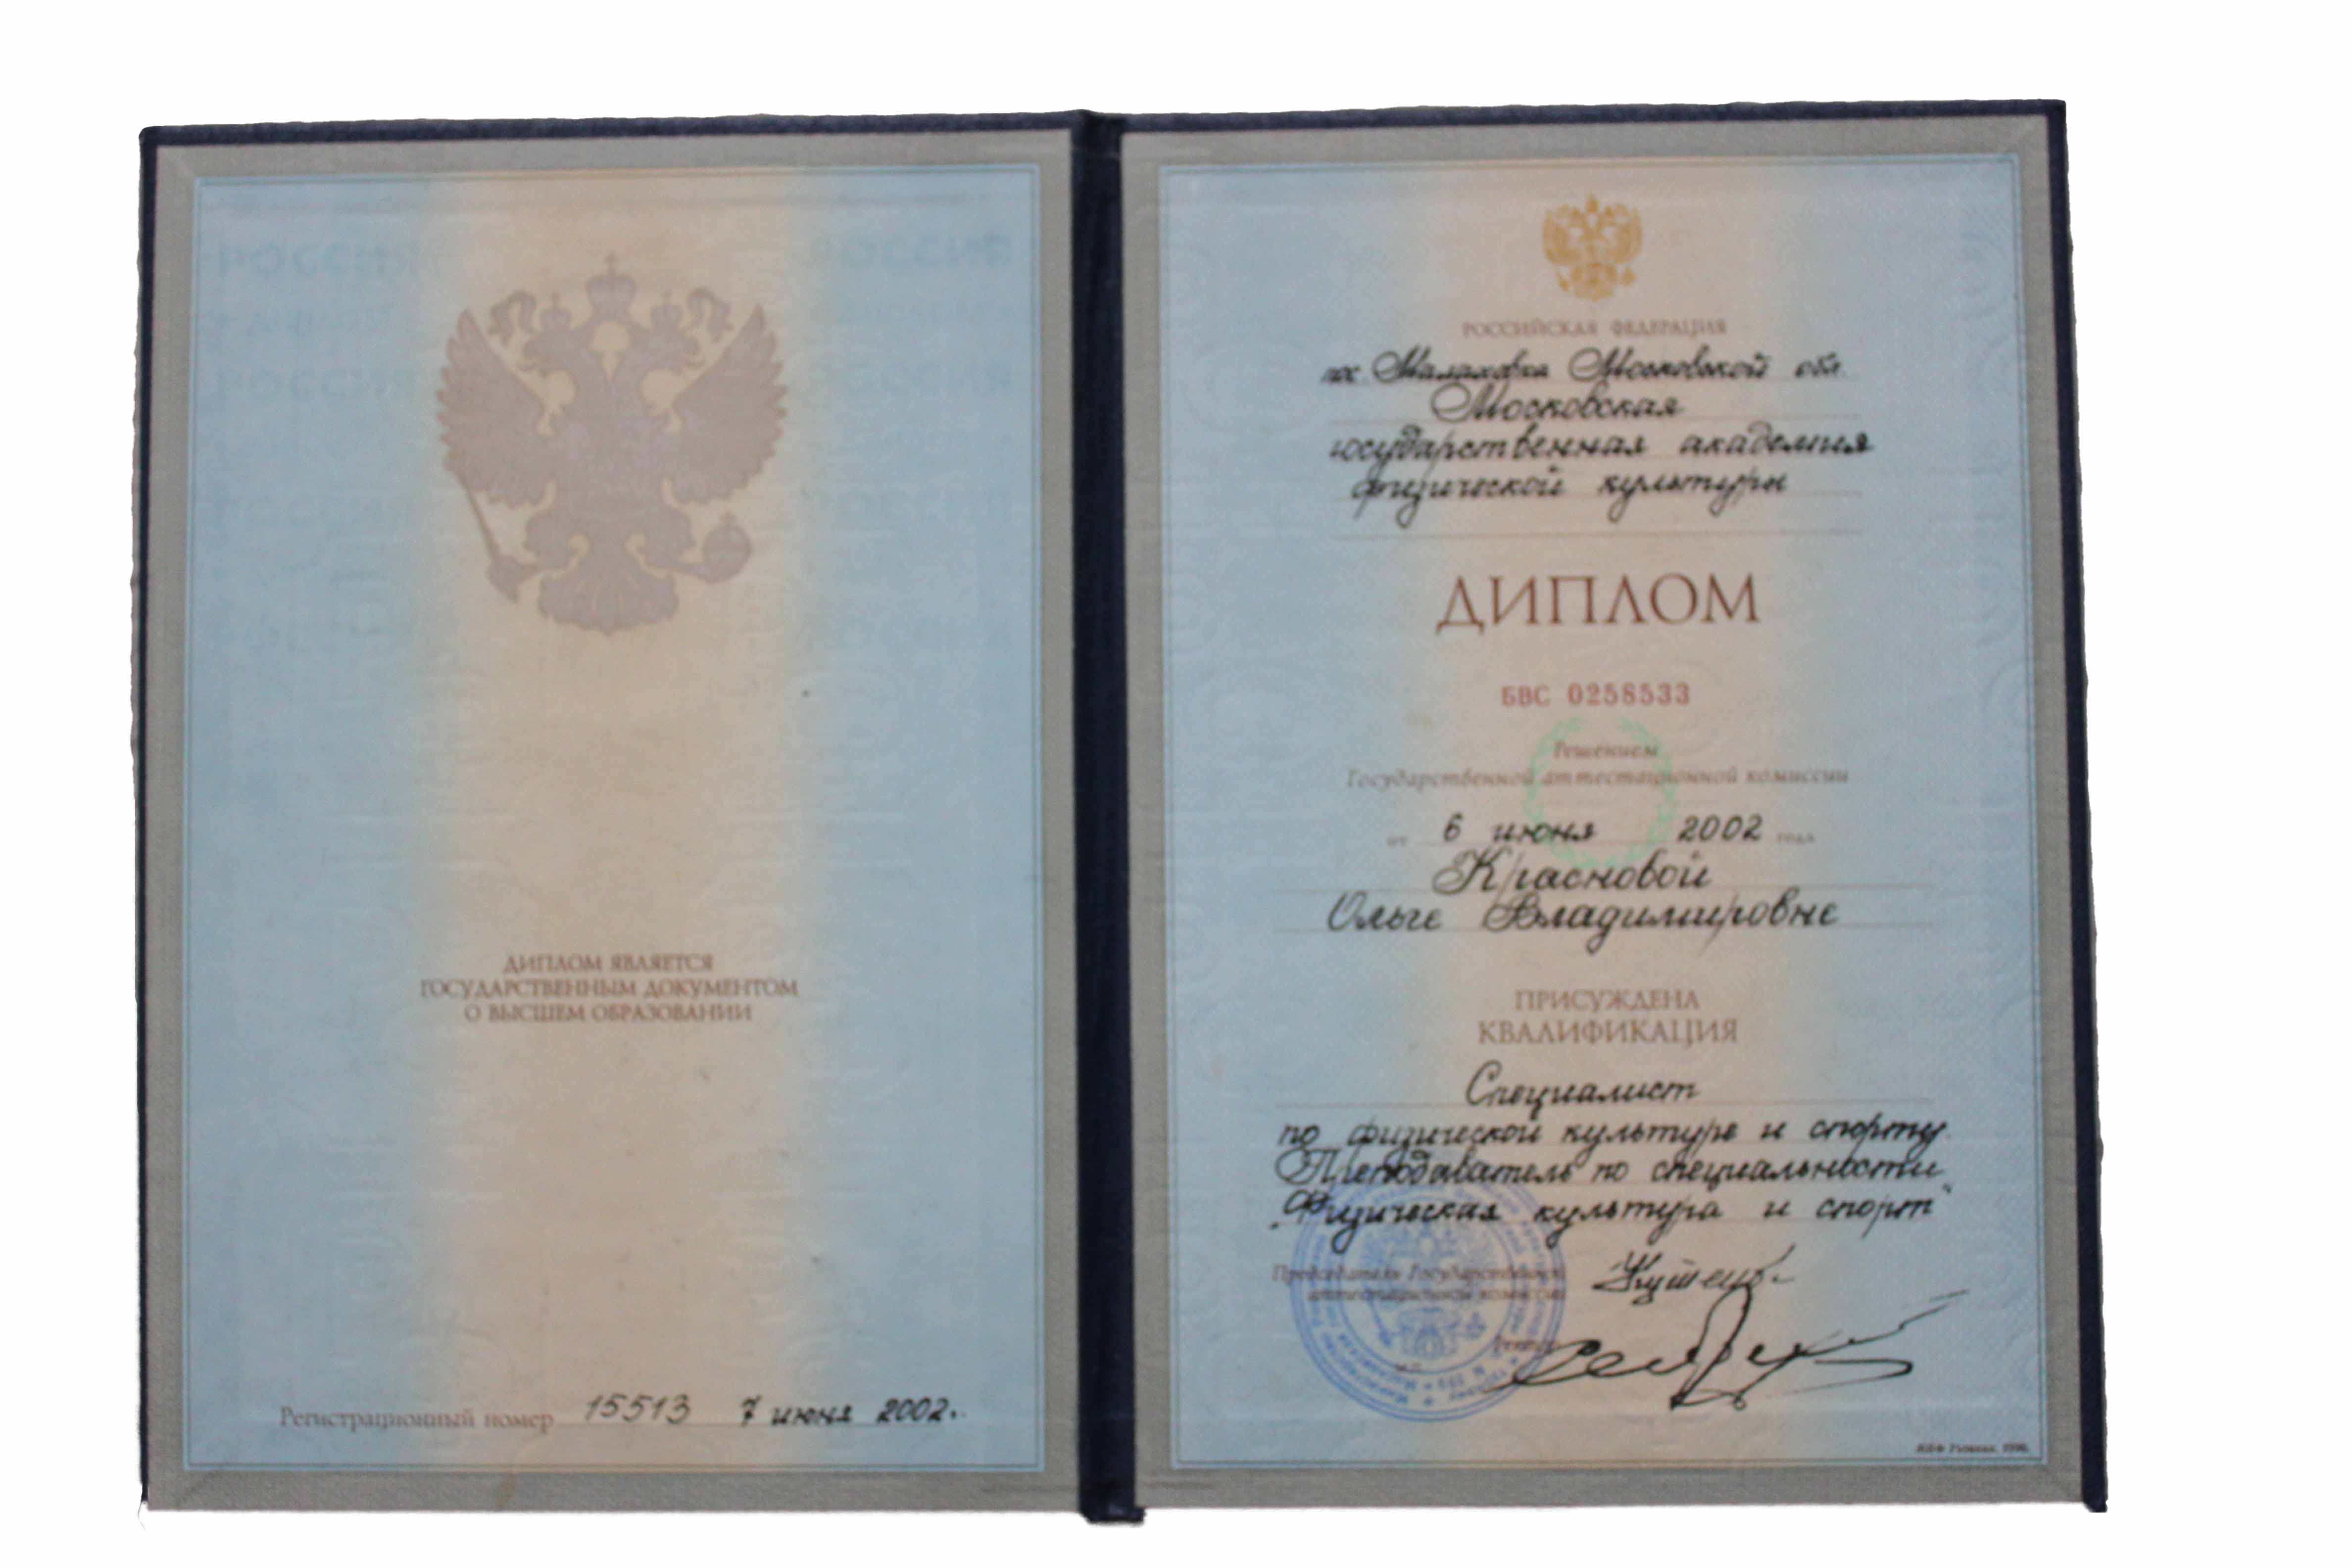 РОССИЯ РОССИЯ
РОССИЯ РОССИЯ
РОССИЯ РОССИЯ
РОССИЯ
ДИПЛОМ ЯВЛЯЕТСЯ
ГОСУДАРСТВЕННЫМ ДОКУМЕНТОМ
О ВЫСШЕМ ОБРАЗОВАНИИ
Регистрационный номер 15513 7 июня 2002г.
РОССИЙСКАЯ ФЕДЕРАЦИЯ
пос. Малаховка Московской обл.
Московская
государственная академия
физической культуры
ДИПЛОМ
БВС 0258533
Решением
Государственной аттестационной комиссии
от 6 июня 2002 года
Красновой
Ольге Владимировне
ПРИСУЖДЕНА
КВАЛИФИКАЦИЯ
Специалист
по физической культуре и спорту.
Преподаватель по специальности
„Физическая культура и спорт"
Председатель Государственной
аттестационной комиссии
Ректор